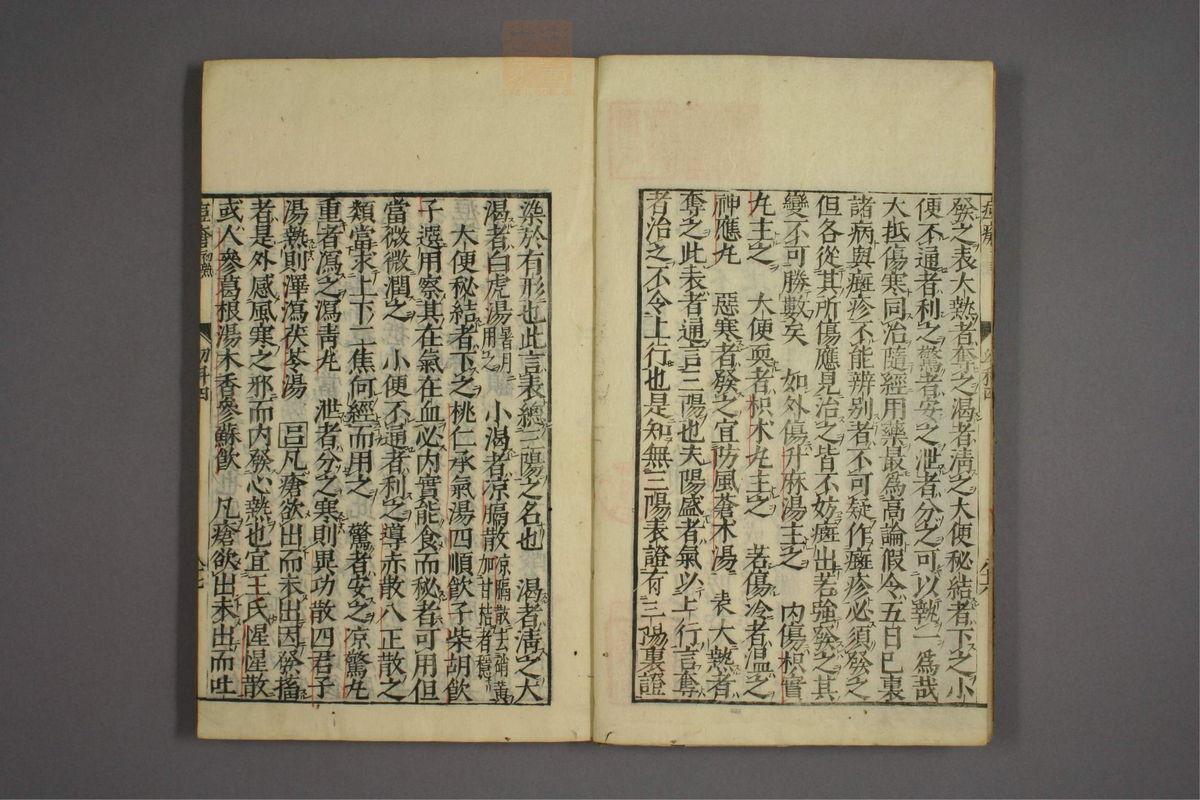 發之表大熱者奪之渴者清之大便秘結者下之小
便不通者利之驚者安之泄者分之可以執一為哉
大抵傷寒同治隨經用藥最為高論假令五日已裏
諸病與癍疹不能辨別者不可疑作癍疹必須發之
但各從其所傷應見治之皆不妨癍出若強發之其
變不可勝數矣 如外傷升麻湯主之 內傷枳實
丸主之 大便耎者枳朮丸主之 若傷冷者溫之
神應丸 惡寒者發之宜防風蒼朮湯 表大熱者
奪之此表者通言三陽也夫陽盛者氣必上行言奪
者治之不令上行也是知無三陽表證有三陽裏證
染於有形也此言表總三陽之名也 渴者清之大
渴者白虎湯暑月用之 小渴者涼膈散涼膈散去硝黃加甘桔者穩
大便秘結者下之桃仁承氣湯四順飲子柴胡飲
子選用察其在氣在血必內實能食而秘者可用但
當微微潤之 小便不通者利之導赤散八正散之
類當求上下二焦何經而用之 驚者安之凉驚丸
重者瀉之瀉青丸 泄者分之寒則異功散四君子
湯熱則澤瀉茯苓湯 呂凡瘡欲出而未出因發搐
者是外感風寒之邪而內發心熱也宜王氏惺惺散
或人參葛根湯木香參蘇飲 凡瘡欲出未出而吐
幼科四